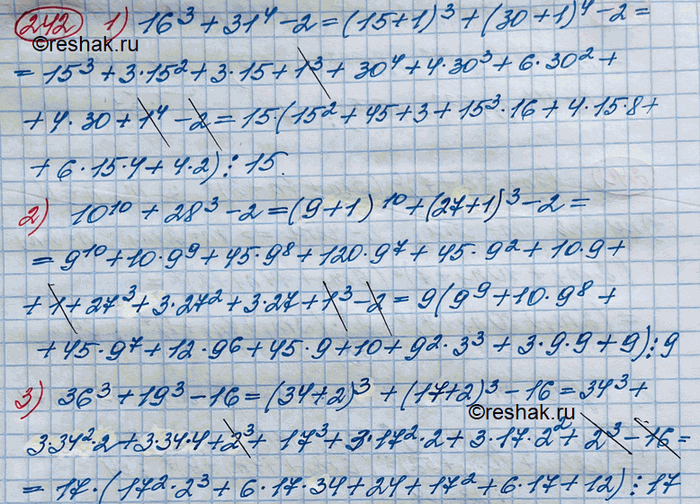 242 1) 16³ + 31⁴ - 2 = (15+1)³ + (30+1)⁴ - 2 =
©reshak.ru
= 15³ + 3·15² + 3·15 + 1³ + 30⁴ + 4·30³ + 6·30² +
+ 4·30 + 1⁴ - 2 = 15·(15² + 45 + 3 + 15³·16 + 4·15·8 +
+ 6·15·4 + 4·2) ⋮ 15.
2) 10¹⁰ + 28³ - 2 = (9+1)¹⁰ + (27+1)³ - 2 =
= 9¹⁰ + 10·9⁹ + 45·9⁸ + 120·9⁷ + 45·9² + 10·9 +
+ 1 + 27³ + 3·27² + 3·27 + 1³ - 2 = 9(9⁹ + 10·9⁸ +
+ 45·9⁷ + 12·9⁶ + 45·9 + 10 + 9²·3³ + 3·9·9 + 9) ⋮ 9
3) 36³ + 19³ - 16 = (34+2)³ + (17+2)³ - 16 = 34³ +
©reshak.ru
3·34²·2 + 3·34·4 + 2³ + 17³ + 3·17²·2 + 3·17·2² + 2³ - 16 =
= 17·(17²·2³ + 6·17·34 + 24 + 17² + 6·17 + 12) ⋮ 17